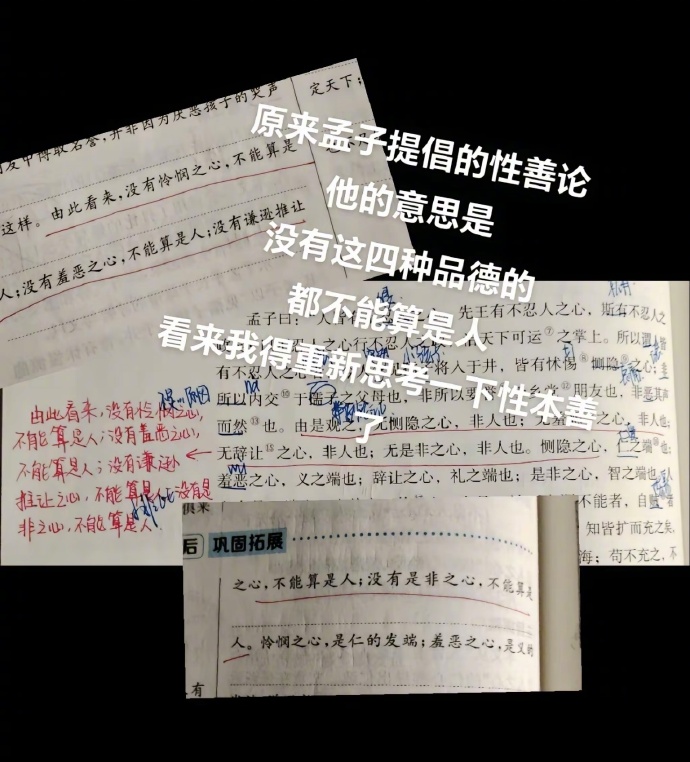 定天下；
中博取名誉，并非因为厌恶孩子的哭声
这样。由此看来，没有怜悯之心，不能算是
人；没有羞恶之心，不能算是人；没有谦逊推让
原来孟子提倡的性善论
他的意思是
没有这四种品德的
都不能算是人
看来我得重新思考一下性本善
了
孟子曰：人皆有 之心。先王有不忍人之心，斯有不忍人之
之心行不忍人之 天下可运⑦之掌上。所以谓
有不忍人之心 将入于井，皆有怵惕 恻隐 之心；
所以内交⑩于孺子之父母也，非所以要 乡党⑫朋友也，非恶其声
而然⑬也。由是观之，无恻隐之心，非人也；无羞恶之心，非人也；
无辞让⑮之心，非人也；无是非之心，非人也。恻隐之心，仁之端 也；
羞恶之心，义之端也；辞让之心，礼之端也；是非之心，智之端也。人
不能者，自
知皆扩而充之矣，
海；苟不充之，不
由此看来，没有怜悯之心，
不能算是人；没有羞恶之心，
不能算是人；没有谦逊
推让之心，不能算是人；没有是
非之心，不能算是人。
后 巩固拓展
之心，不能算是人；没有是非之心，不能算是
人。怜悯之心，是仁的发端；羞恶之心，是义的
有